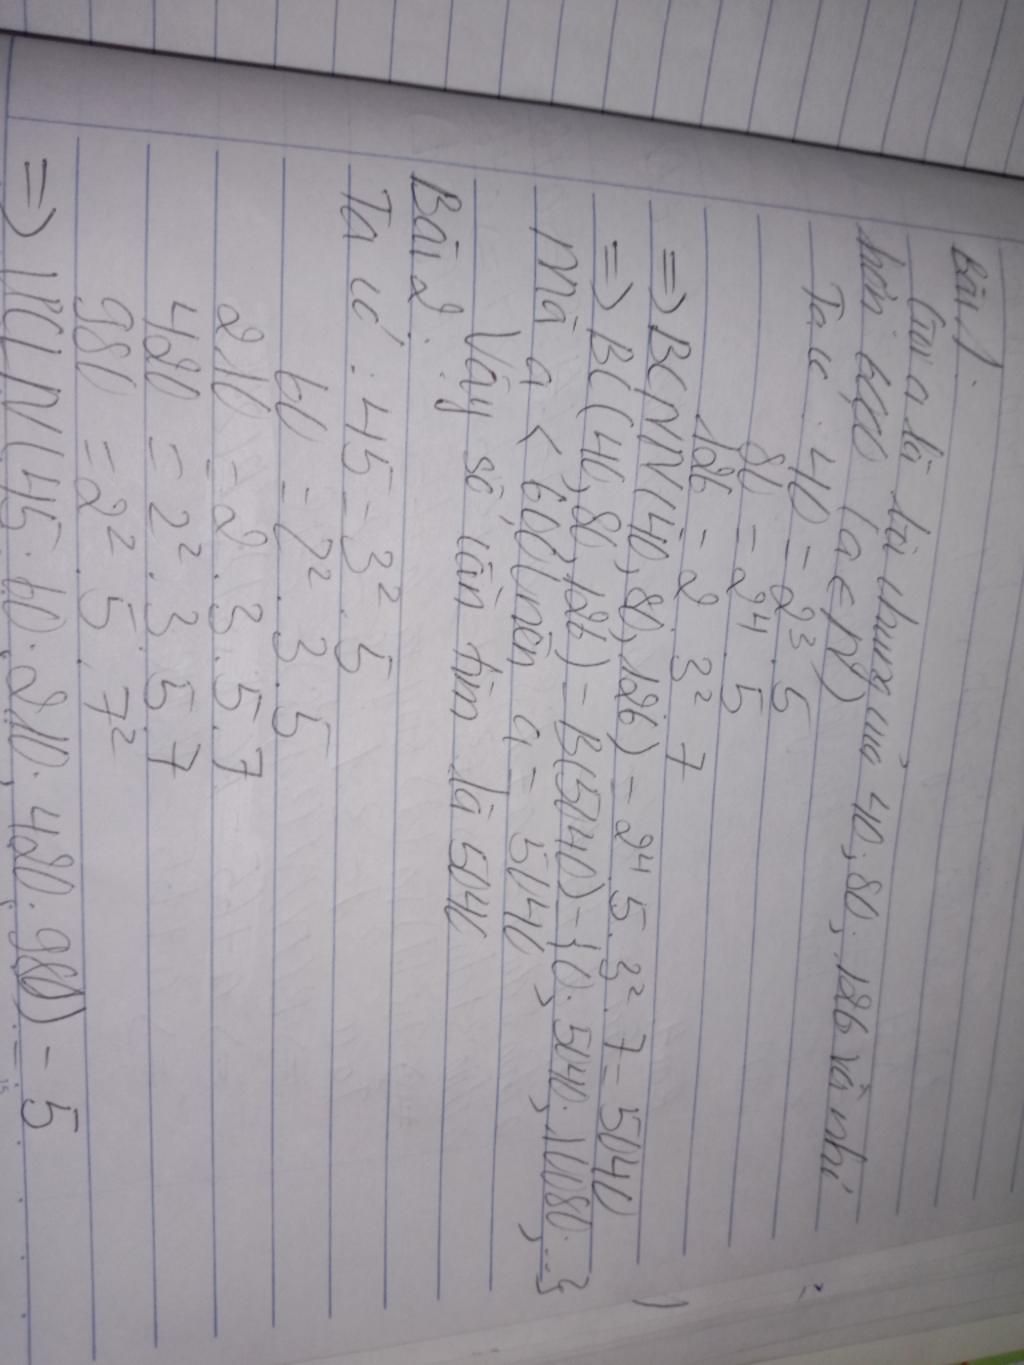 Bài 1:
Gọi a là bội chung của 40; 80; 126 và nhỏ
hơn 6000 (a ∈ N)
Ta có: 40 = 2³.5
80 = 2⁴.5
126 = 2.3².7
=> BCNN(40, 80, 126) = 2⁴.5.3².7 = 5040
=> BC(40, 80, 126) = B(5040) = {0; 5040; 10080; ...}
Mà a < 6000 nên a = 5040
Vậy số cần tìm là 5040
Bài 2:
Ta có: 45 = 3².5
60 = 2².3.5
210 = 2.3.5.7
420 = 2².3.5.7
980 = 2².5.7²
=> ƯCLN(45; 60; 210; 420; 980) = 5